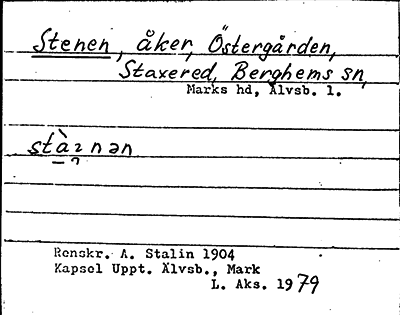 Stenen, åker, Östergården,
Staxered, Berghems sn,
Marks hd, Älvsb. l.
Renskr. A. Stalin 1904
Kapsel Uppt. Älvsb., Mark
L. Aks. 1979